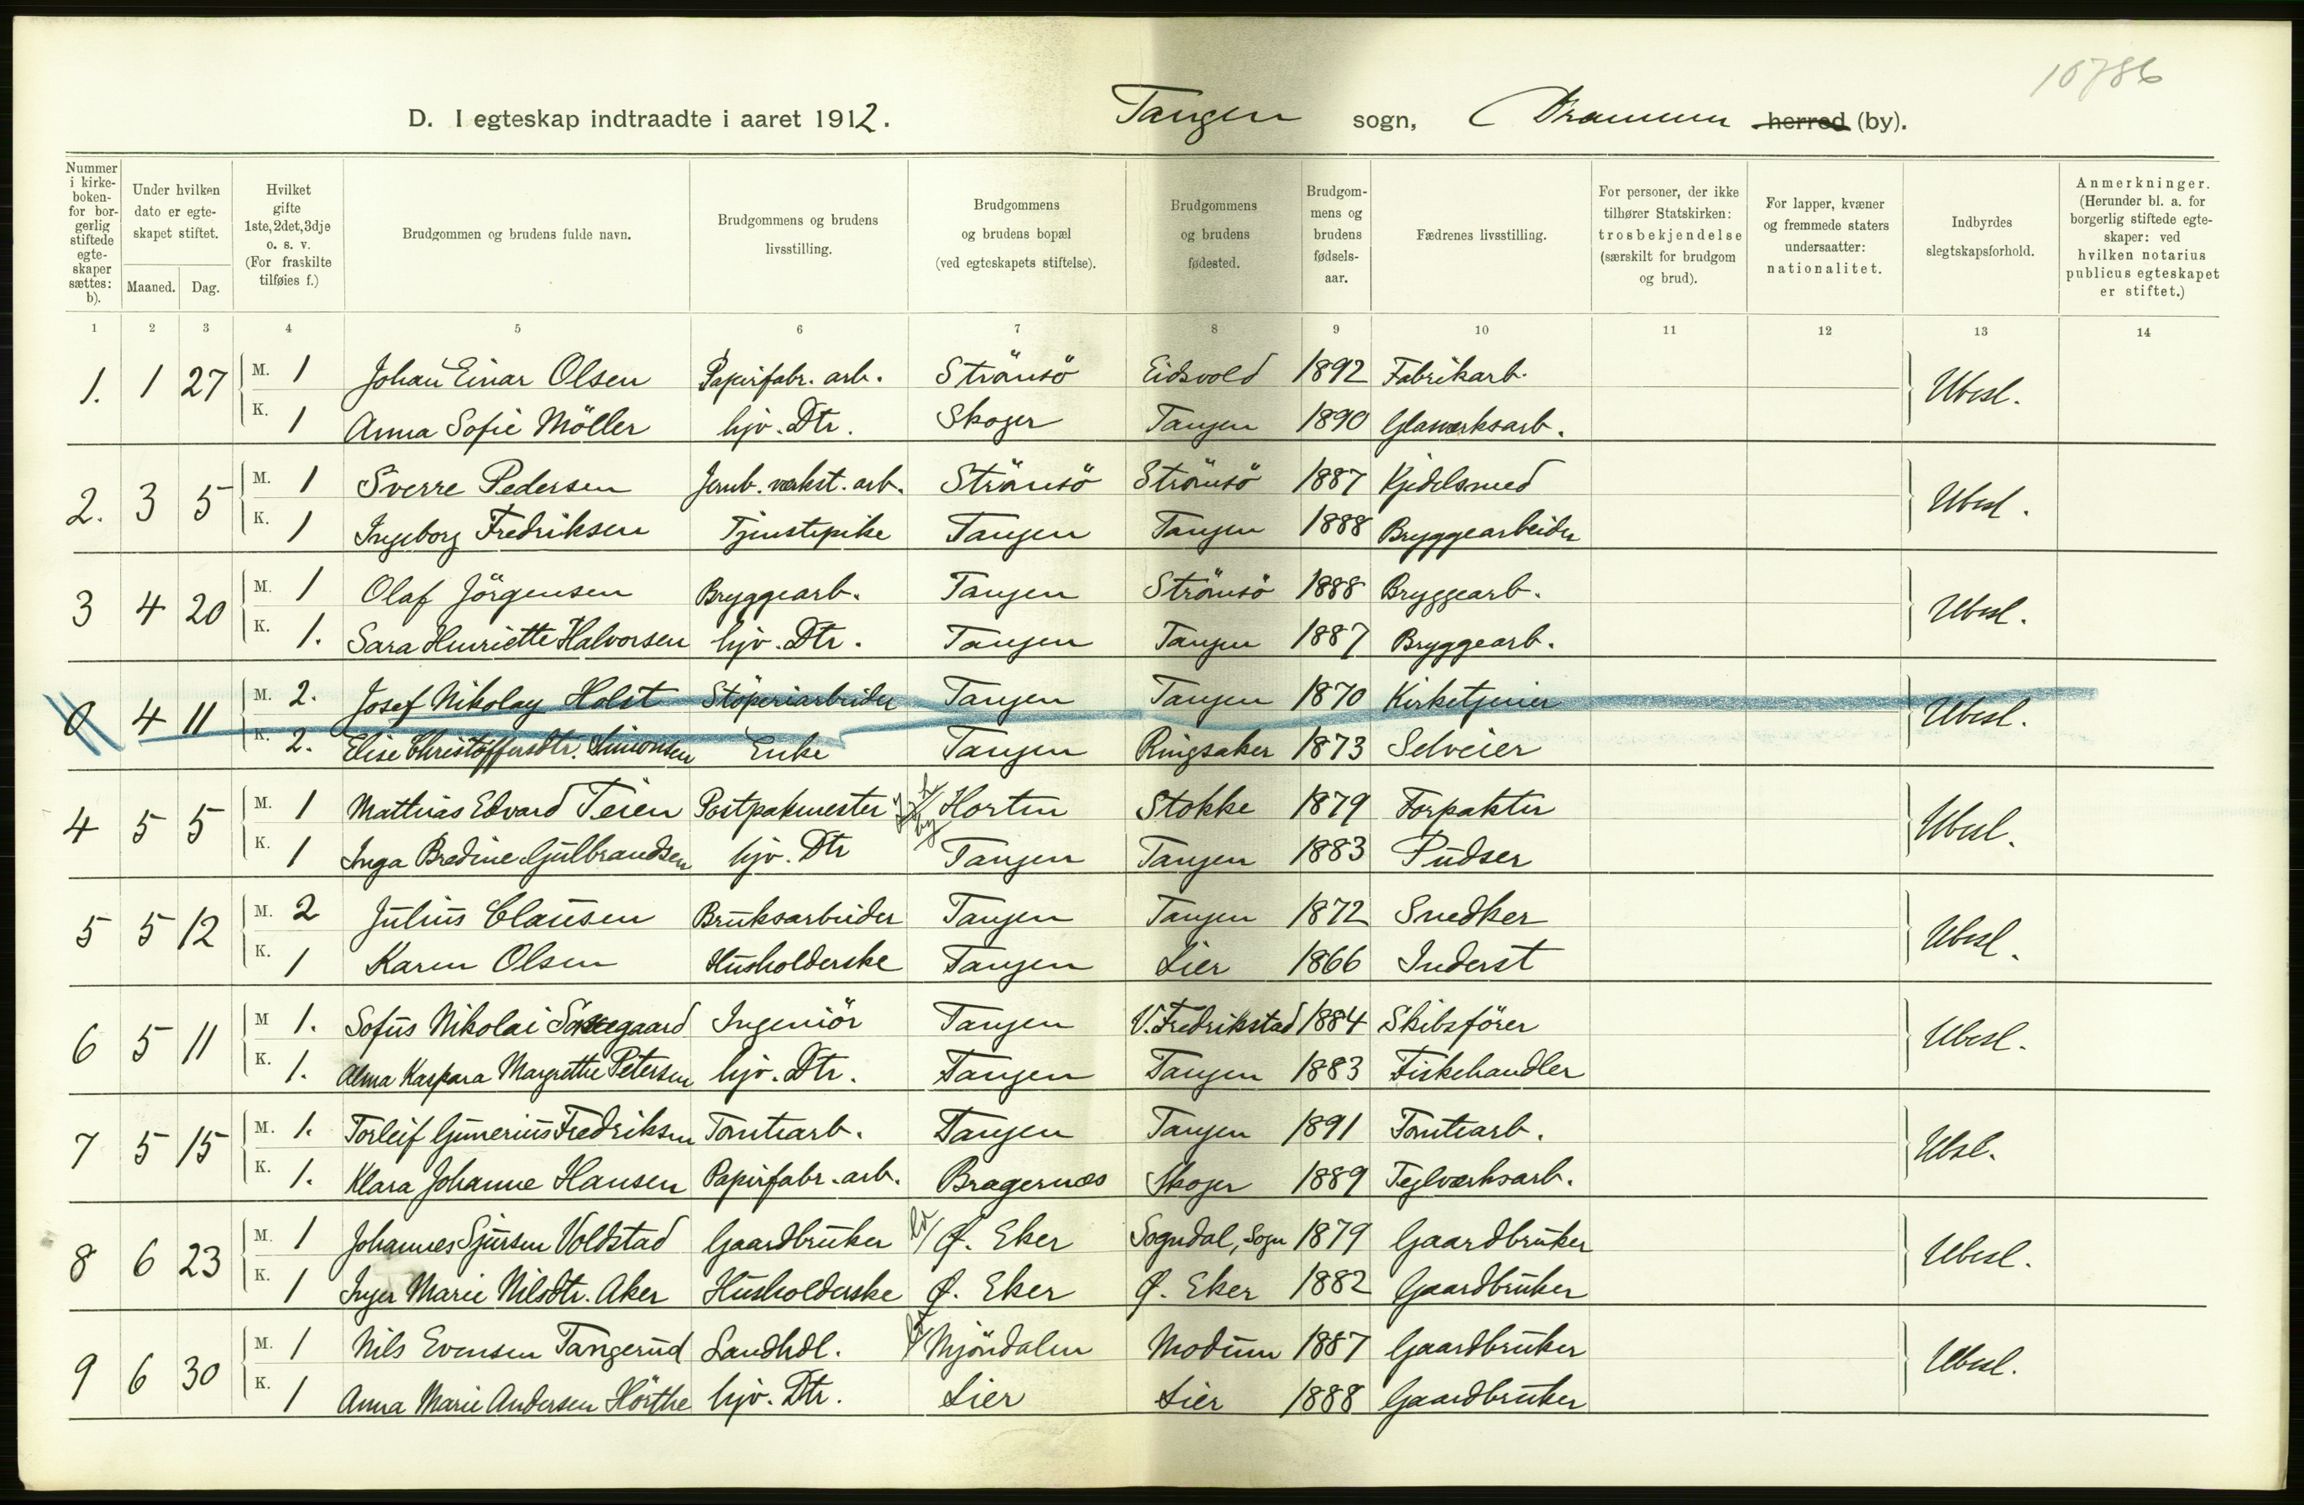 10786
D. I egteskap indtraadte i aaret 1912. Tangen sogn, Drammen herred (by).
Nummer i kirke-boken- for bor-gerlig stiftede egte-skaper sættes: b). | Under hvilken dato er egte-skapet stiftet. Maaned. Dag. | Hvilket gifte 1ste, 2det, 3dje o. s. v. (For fraskilte tilføies f.) | Brudgommen og brudens fulde navn. | Brudgommens og brudens livsstilling. | Brudgommens og brudens bopæl (ved egteskapets stiftelse). | Brudgommens og brudens fødested. | Brudgom-mens og brudens fødsels-aar. | Fædrenes livsstilling. | For personer, der ikke tilhører Statskirken: trosbekjendelse (særskilt for brudgom og brud). | For lapper, kvæner og fremmede staters undersaatter: nationalitet. | Indbyrdes slegtskapsforhold. | Anmerkninger. (Herunder bl. a. for borgerlig stiftede egte-skaper: ved hvilken notarius publicus egteskapet er stiftet.)
1 2 3 4 5 6 7 8 9 10 11 12 13 14
1. 1 27 M. 1 Johan Einar Olsen Papirfabr. arb. Strömsö Eidsvold 1892 Fabrikarb. Ubesl.
K. 1 Anna Sofie Möller hjv. Dtr. Skoger Tangen 1890 Glasverksarb.
2. 3 5 M. 1 Sverre Pedersen Jernb. værkst. arb. Strömsö Strömsö 1887 Kjedelsmed Ubesl.
K. 1 Ingeborg Fredriksen Tjenstepike Tangen Tangen 1888 Bryggearbeider
3 4 20 M. 1 Olaf Jörgensen Bryggearb. Tangen Strömsö 1888 Bryggearb. Ubesl.
K. 1. Sara Henriette Halvorsen hjv. Dtr. Tangen Tangen 1887 Bryggearb.
0 4 11 M. 2. Josef Nikolay Holst Støperiarbeider Tangen Tangen 1870 Kirketjener Ubesl.
K. 2. Elise Christoffersdtr. Simonsen Enke Tangen Ringsaker 1873 Selveier
4 5 5 M. 1 Mathias Edvard Teien Postpakmester Horten Stokke 1879 Forpakter Ubesl.
K. 1 Inga Bredine Gulbrandsen hjv. Dtr by Tangen Tangen 1883 Pudser
5 5 12 M. 2 Julius Clausen Bruksarbeider Tangen Tangen 1872 Snedker Ubesl.
K. 1 Karen Olsen Husholderske Tangen Lier 1866 Inderst
6 5 11 M 1. Sofus Nikolai Ingeniör Tangen V. Fredrikstad 1884 Skibsförer Ubesl.
K. 1. Alma Kaspara Margrethe Petersen hjv. Dtr. Tangen Tangen 1883 Fiskehandler
7 5 15 M. 1. Torleif Gunerius Fredriksen Tomtearb. Tangen Tangen 1891 Tomtearb. Ubsl.
K. 1. Klara Johanne Hansen Papirfabr. arb. Bragernæs Skoger 1889 Teglværksarb.
8 6 23 M. 1 Johannes Sjursen Voldstad Gaardbruker Ø. Eker Sogndal, Sogn 1879 Gaardbruker Ubesl.
K. 1 Inger Marie Nilsdtr. Aker Husholderske Ø. Eker Ø. Eker 1882 Gaardbruker
9 6 30 M. 1 Nils Evensen Tangerud Landhdl. Mjöndalen Modum 1887 Gaardbruker Ubesl.
K. 1 Anna Marie Andersen Hörthe hjv. Dtr. Lier Lier 1888 Gaardbruker